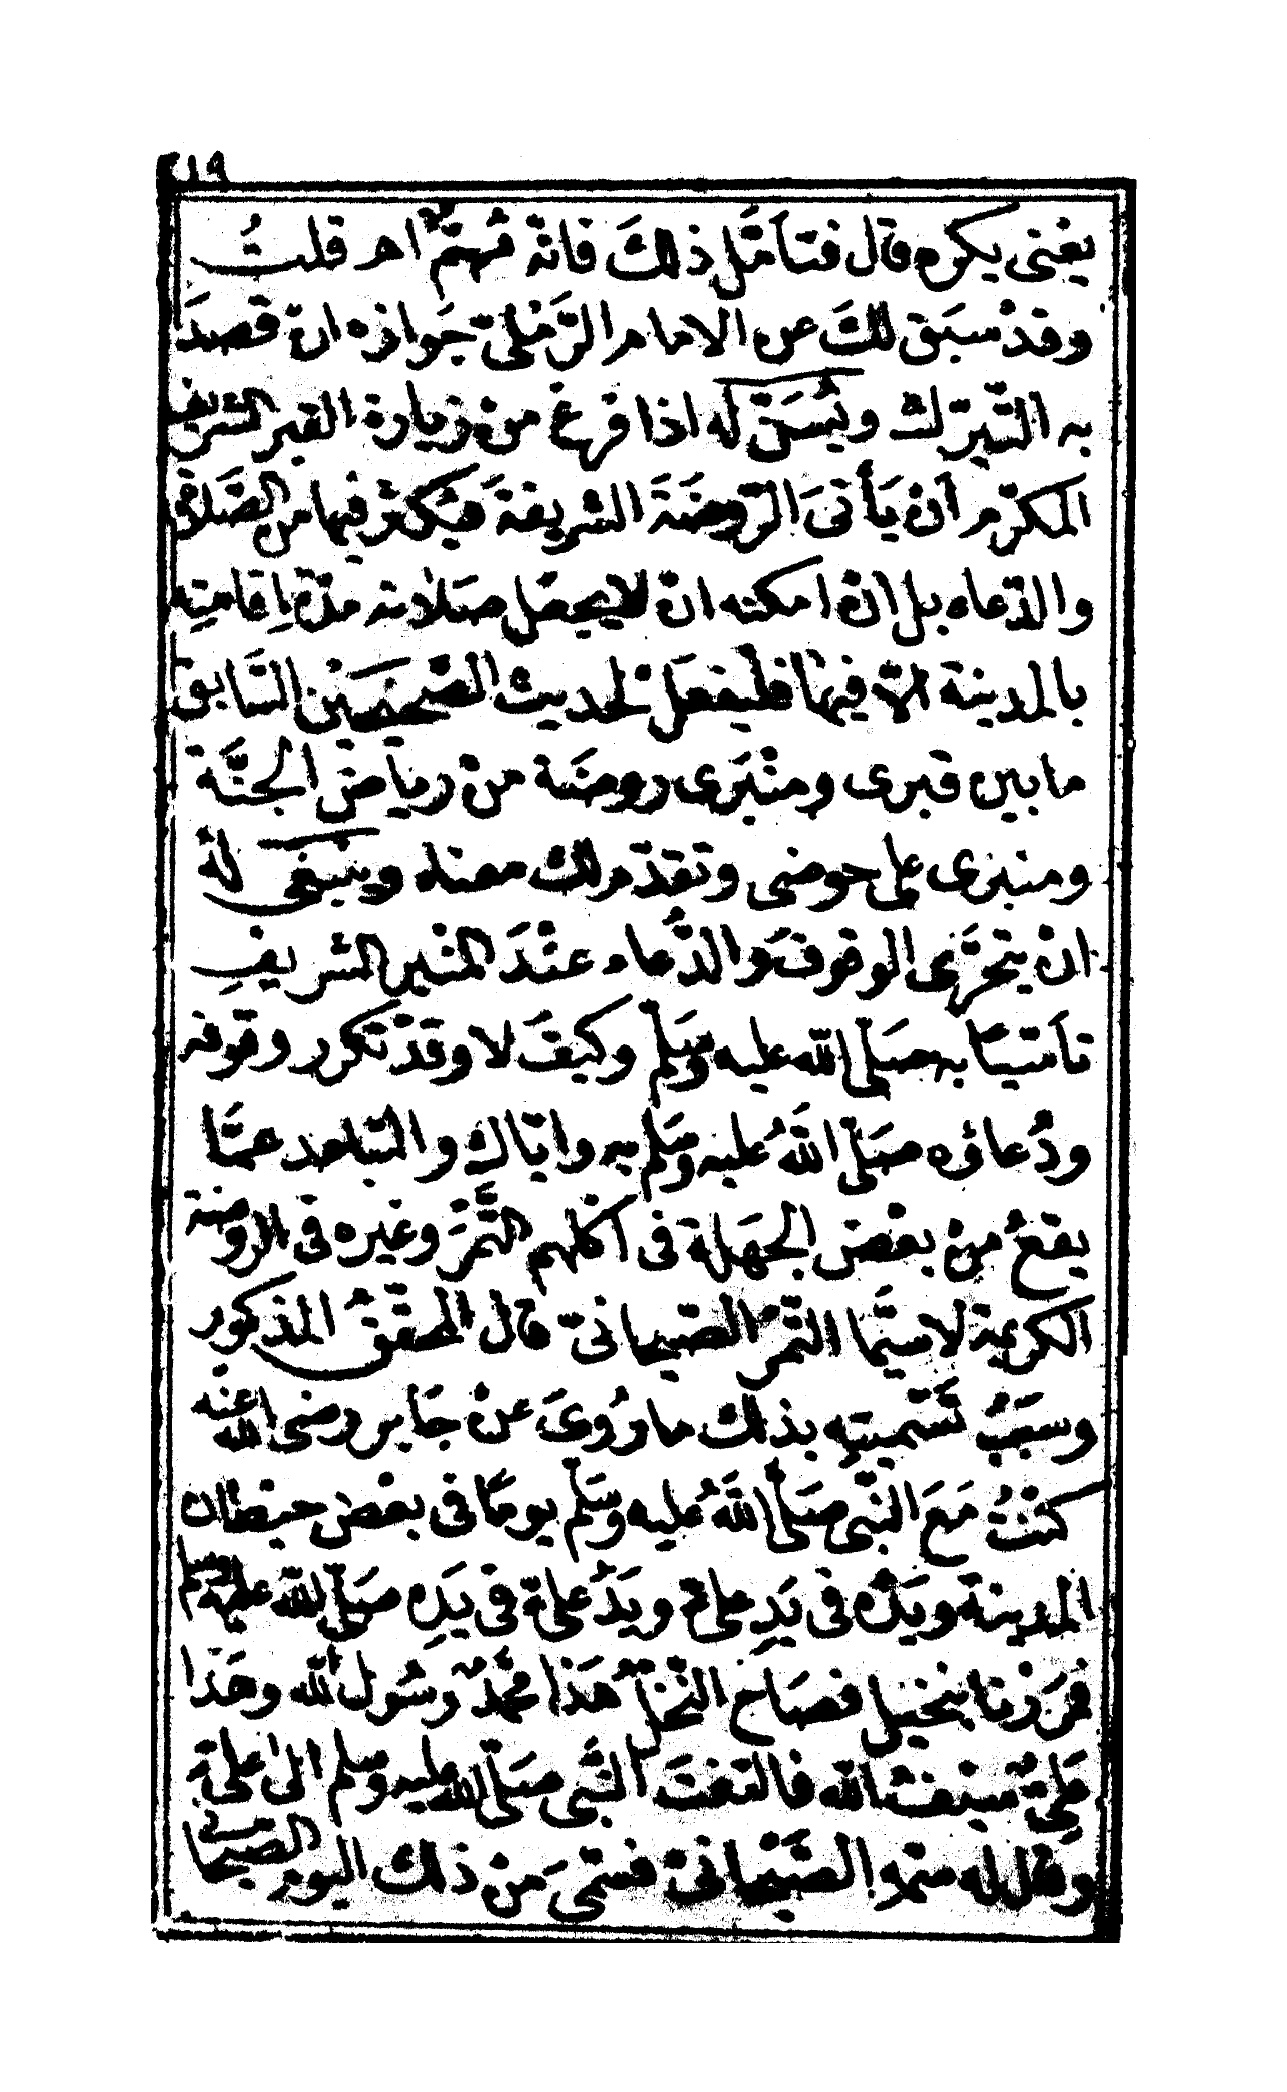 ٢١٩
يعنى يكره قال فتأمّل ذلكَ فانّه مُهِمٌّ اهـ قلتُ
وقدْ سبَق لكَ عن الامام الرّمَلىّ جَوازه انّ قصدَ
به التّبرّك ويُسَنّ له اذا فرغ منْ زيارة القبر الشريف
المكرّم أنْ يَأتىَ الرّوضَةَ الشريفة فيُكثرْ فيها من الصّلاة
والدّعاء بل انْ امكنه انْ لا يجعل صَلاته مدّة اِقامتِه
بالمدينة الاّ فيها فليفعلْ لحديث الصّحيحَيْن السّابق
ما بين قبرى ومنْبَرى روضَة منْ رياض الجنّة
ومنبرى على حوضى وتقدّم لك معناه وينبغى لهُ
انْ يتحرّى الوقوفَ والدُّعاء عنْدَ المنْبر الشريفِ
تأسّيًا به صَلّى الله عليه وسَلم وكيفَ لا وقدْ تكرر وقوفه
ودُعاؤه صَلّى اللهُ عليه وسَلم به وايّاك والتباعد عمّا
يقعُ منْ بعْض الجهَلة فى أكلهم التَّمرَ وغيره فى الروضة
الكريمة لا سيَّما التّمْر الصّيحانىّ قال المحققُ المذكور
وسبَبُ تسْميتِهِ بذلك ما رُوىَ عنْ جَابر رضى الله عنه
كنْتُ مَعَ النّبى صَلّى اللهُ عليه وسَلم يومًا فى بعْض حيطان
المدينة ويَدُه فى يَدِ علىّ ويَدُ علىّ فى يَدِه صَلّى الله عليه وسلم
فمَررْنا بنخيل فصَاح النّخلُ هَذا محمّدٌ رسُول الله وهَذا
علىٌّ سَيْف الله فالتفتَ النّبى صَلّى الله عليه وسلم الى علىّ
وقال له سَمّه الصّيْحانىّ فسمّى منْ ذلك اليوم الصيحانى